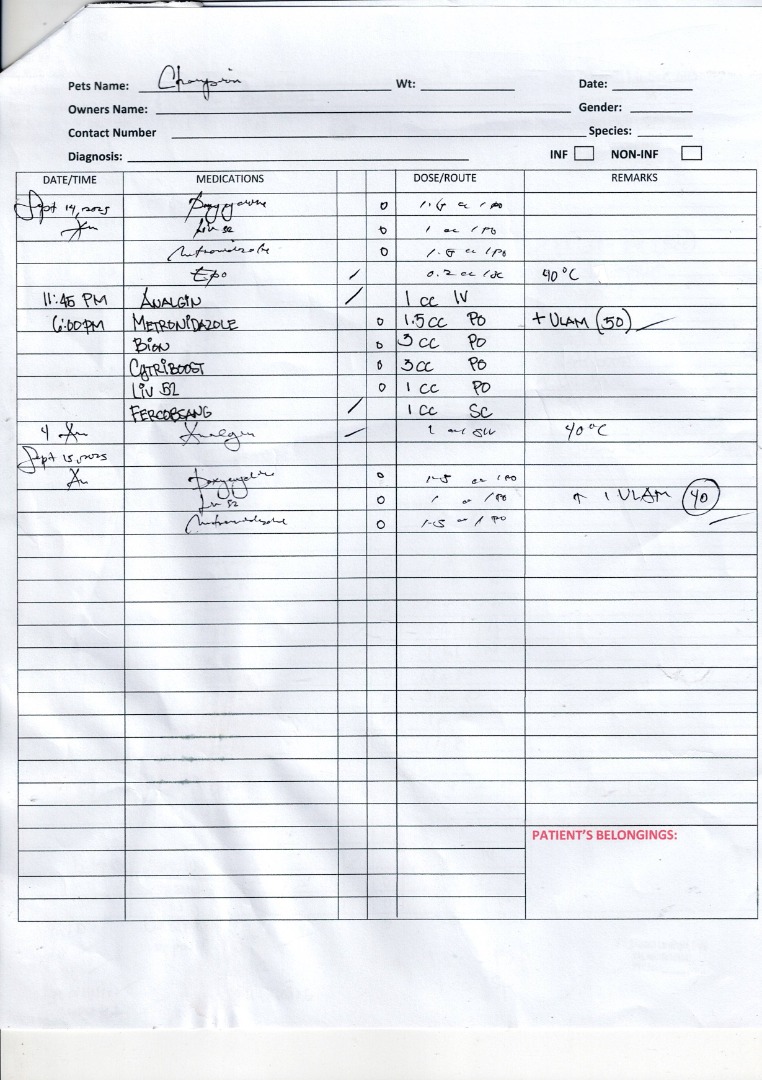 Pets Name: Champion Wt: Date:
Owners Name: Gender:
Contact Number Species:
Diagnosis: INF NON-INF
DATE/TIME MEDICATIONS DOSE/ROUTE REMARKS
Sept 14, 2025 Doxycycline o 1.5 cc / PO
Liv 52 o 1 cc / PO
Metronidazole o 1.5 cc / PO
Epo / 0.2 cc / SC 40°C
11:45 PM ANALGIN / 1 cc IV
6:00 PM METRONIDAZOLE o 1.5 cc PO + ULAM (50)
BION o 3 cc PO
CATRIBOOST o 3 cc PO
LIV 52 o 1 cc PO
FERCOBSANG / 1 cc SC
4 Analgin / 1 40°C
Sept 15, 2025
Doxycycline o 1.5 cc / PO
Liv 52 o 1 cc / PO ↑ 1 ULAM 40
Metronidazole o 1.5 cc / PO
PATIENT'S BELONGINGS: